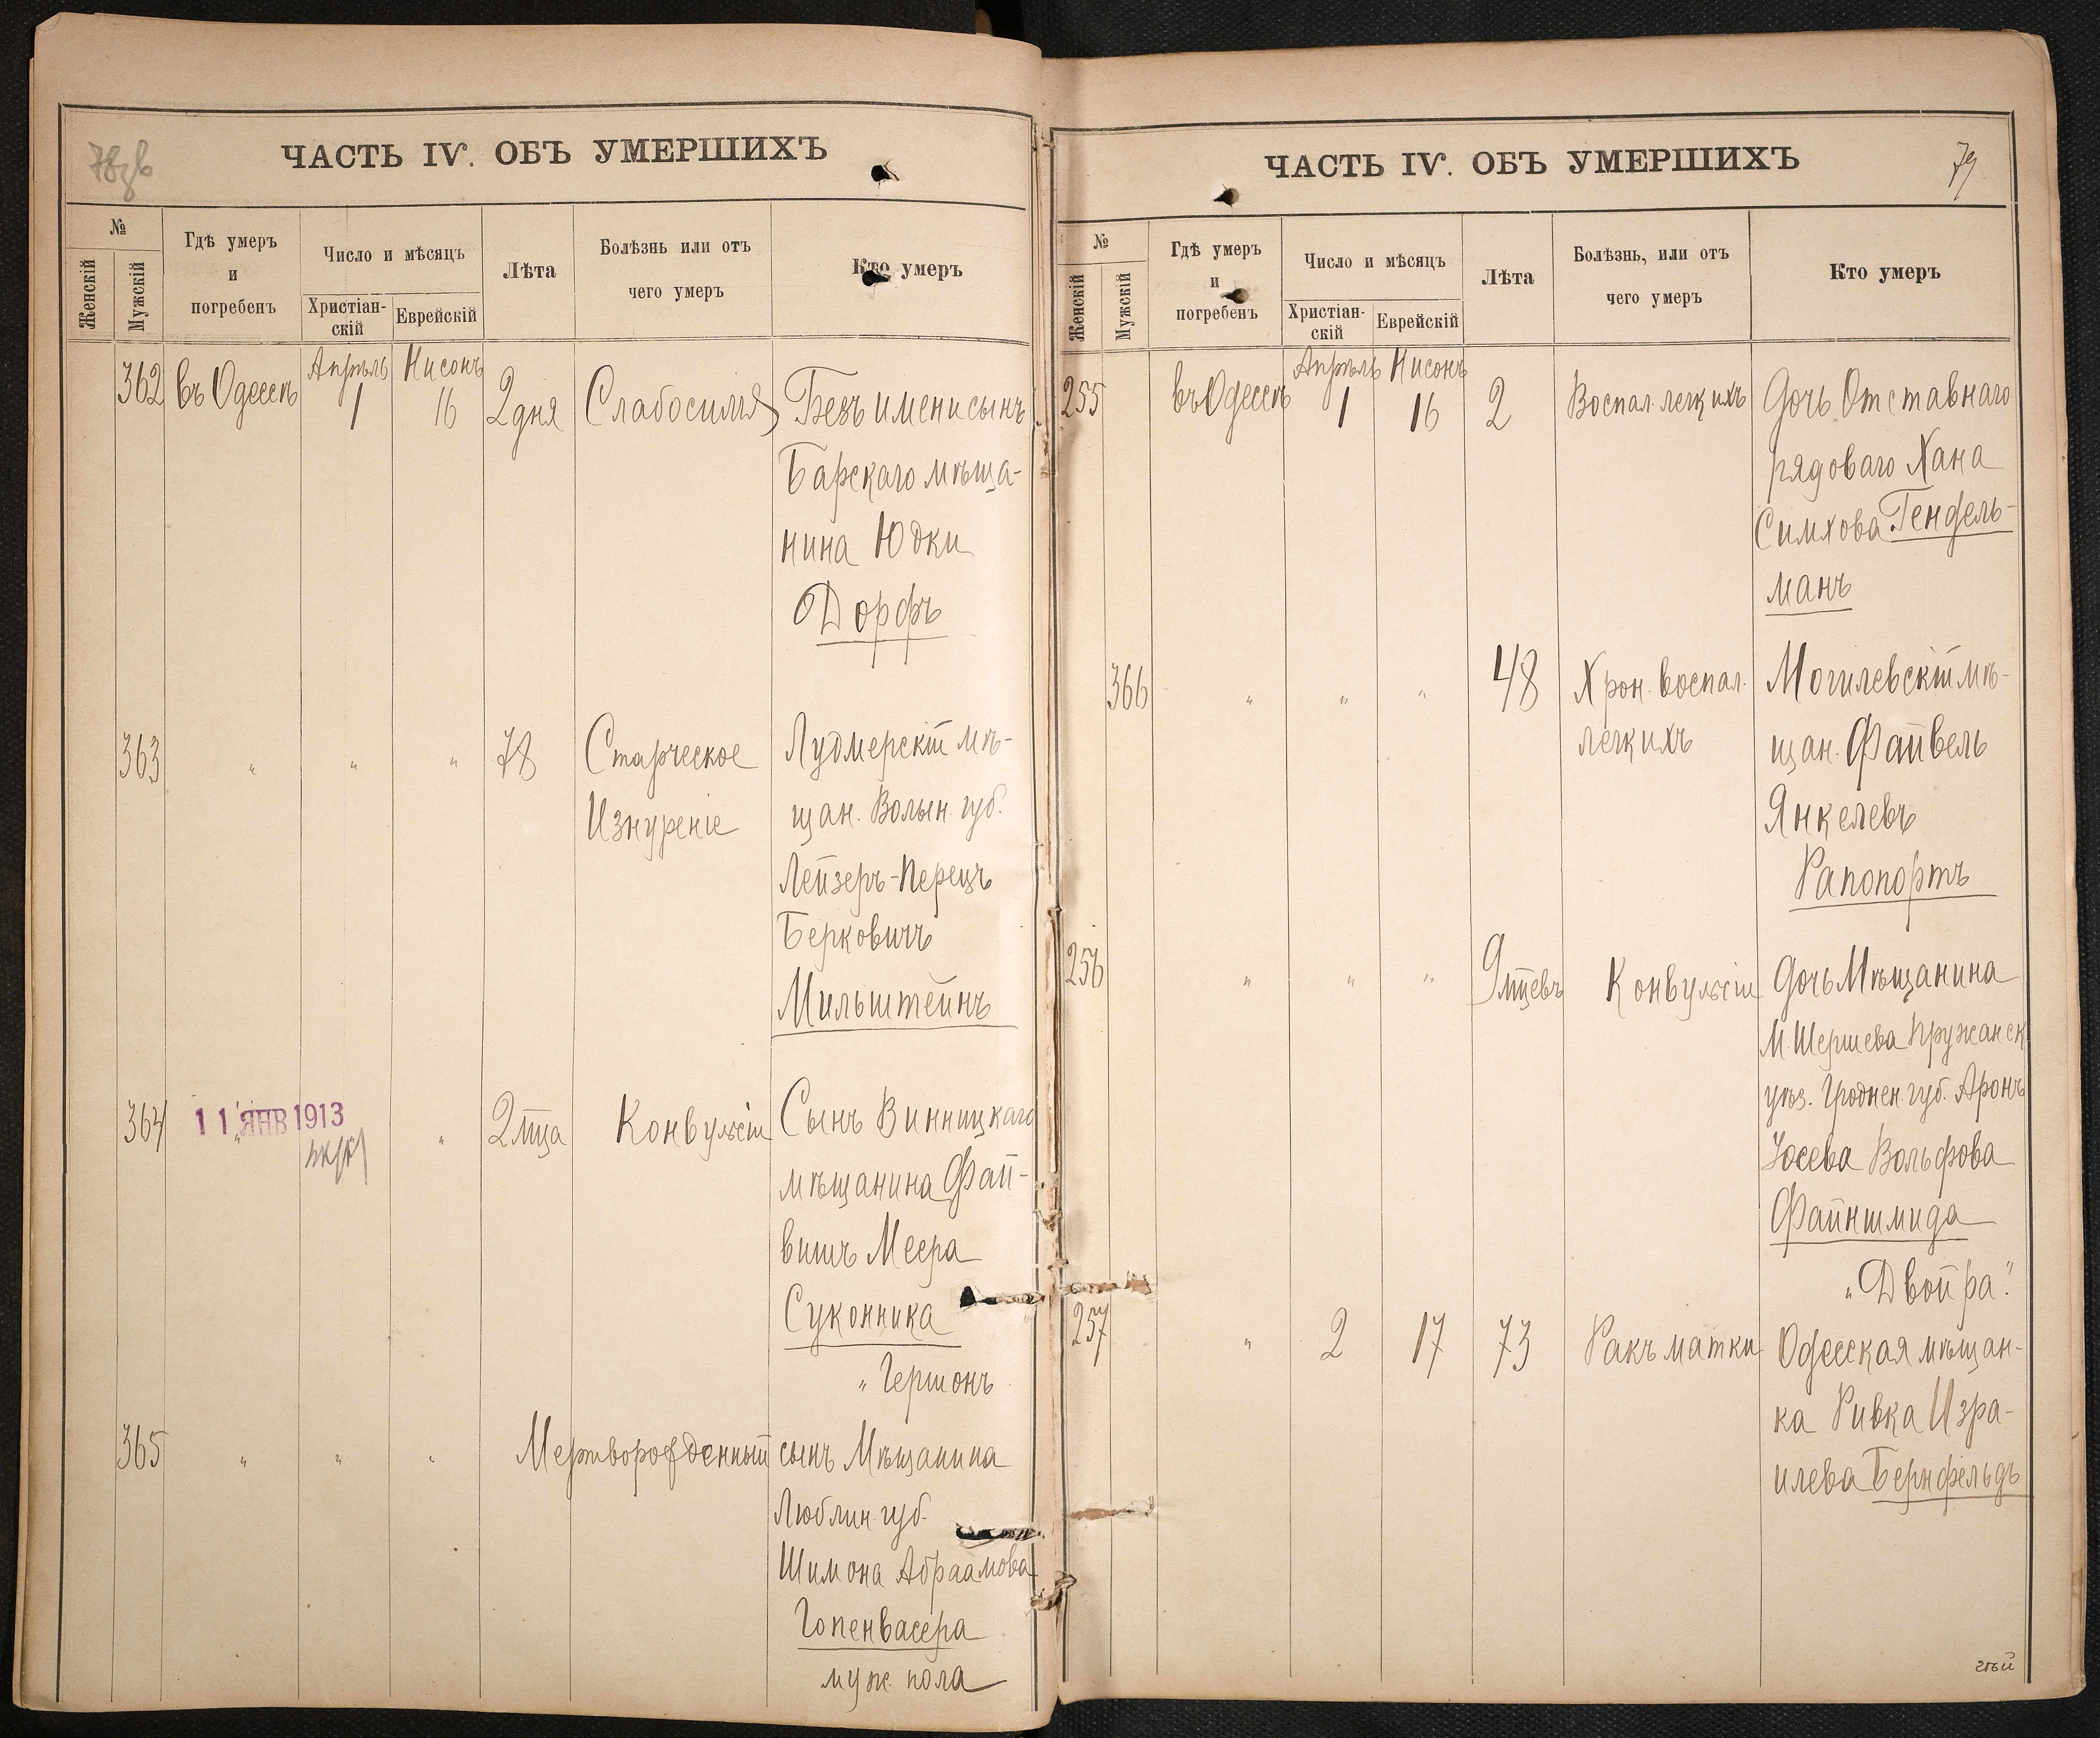 ЧАСТЬ IV. ОБЪ УМЕРШИХЪ
№
Женскій
Мужскій
Гдѣ умеръ
и
погребенъ
Число и мѣсяцъ
Христіан-
скій
Еврейскій
Лѣта
Болѣзнь или отъ
чего умеръ
Кто умеръ
362 въ Одессѣ Апрѣль 1 Нисонъ 16 2 дня Слабосилія Безъ имени сынъ
Барскаго мѣща-
нина Юдки
Дорфъ
363 " " " 78 Старческое Лудмерскій мѣ-
Изнуреніе щан. Волын. губ.
Лейзеръ-Перецъ
Берковичъ
Мильштейнъ
364 " " 2 мца Конвульсіи Сынъ Винницкаго
11 ЯНВ 1913
мѣщанина Фай-
вишъ Меера
Суконника
"Гершонъ
365 " " " Мертворожденный сынъ Мѣщанина
Люблин. губ.
Шимона Абраамова
Гопенвасера
муж. пола
ЧАСТЬ IV. ОБЪ УМЕРШИХЪ
79
№
Женскій
Мужскій
Гдѣ умеръ
и
погребенъ
Число и мѣсяцъ
Христіан-
скій
Еврейскій
Лѣта
Болѣзнь, или отъ
чего умеръ
Кто умеръ
255 въ Одессѣ Апрѣль 1 Нисонъ 16 2 Воспал. легкихъ Дочь Отставнаго
рядоваго Хана
Симхова Гендель-
манъ
366 " " " 48 Хрон. воспал. Могилевскій мѣ-
легкихъ щан. Файвель
Янкелевъ
Рапопортъ
256 " " " 9 мцевъ Конвульсіи Дочь Мѣщанина
М. Шершева Пружанск.
уѣз. Гроднен. губ. Аронъ
Іосева Вольфова
Файншмида
"Двойра."
257 " 2 17 73 Ракъ матки Одесская мѣщан-
ка Ривка Изра-
илева Бернфельдъ